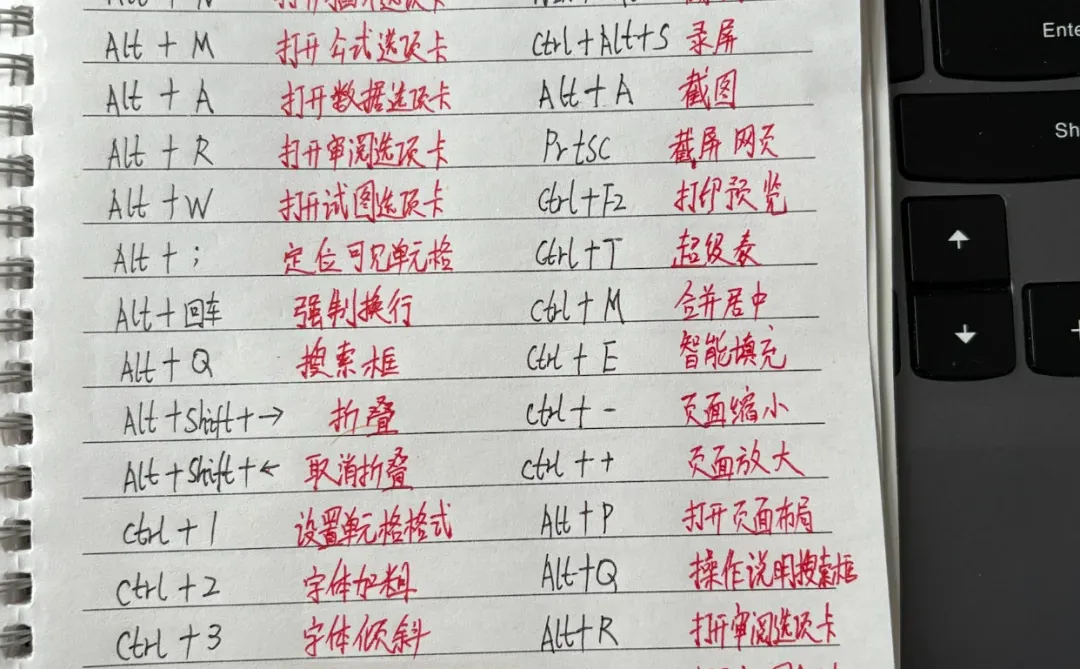 Alt + N 打开插入选项卡
Alt + M 打开公式选项卡 Ctrl+Alt+S 录屏
Alt + A 打开数据选项卡 Alt+A 截图
Alt + R 打开审阅选项卡 PrtSC 截屏网页
Alt +W 打开试图选项卡 Ctrl+F2 打印预览
Alt + ; 定位可见单元格 Ctrl+T 超级表
Alt+回车 强制换行 Ctrl+M 合并居中
Alt + Q 搜索框 Ctrl + E 智能填充
Alt+Shift+→ 折叠 Ctrl + - 页面缩小
Alt+Shift+← 取消折叠 Ctrl + + 页面放大
Ctrl + 1 设置单元格格式 Alt + P 打开页面布局
Ctrl + 2 字体加粗 Alt+Q 操作说明搜索框
Ctrl + 3 字体倾斜 Alt+R 打开审阅选项卡
Ente
Sh
↑
↓